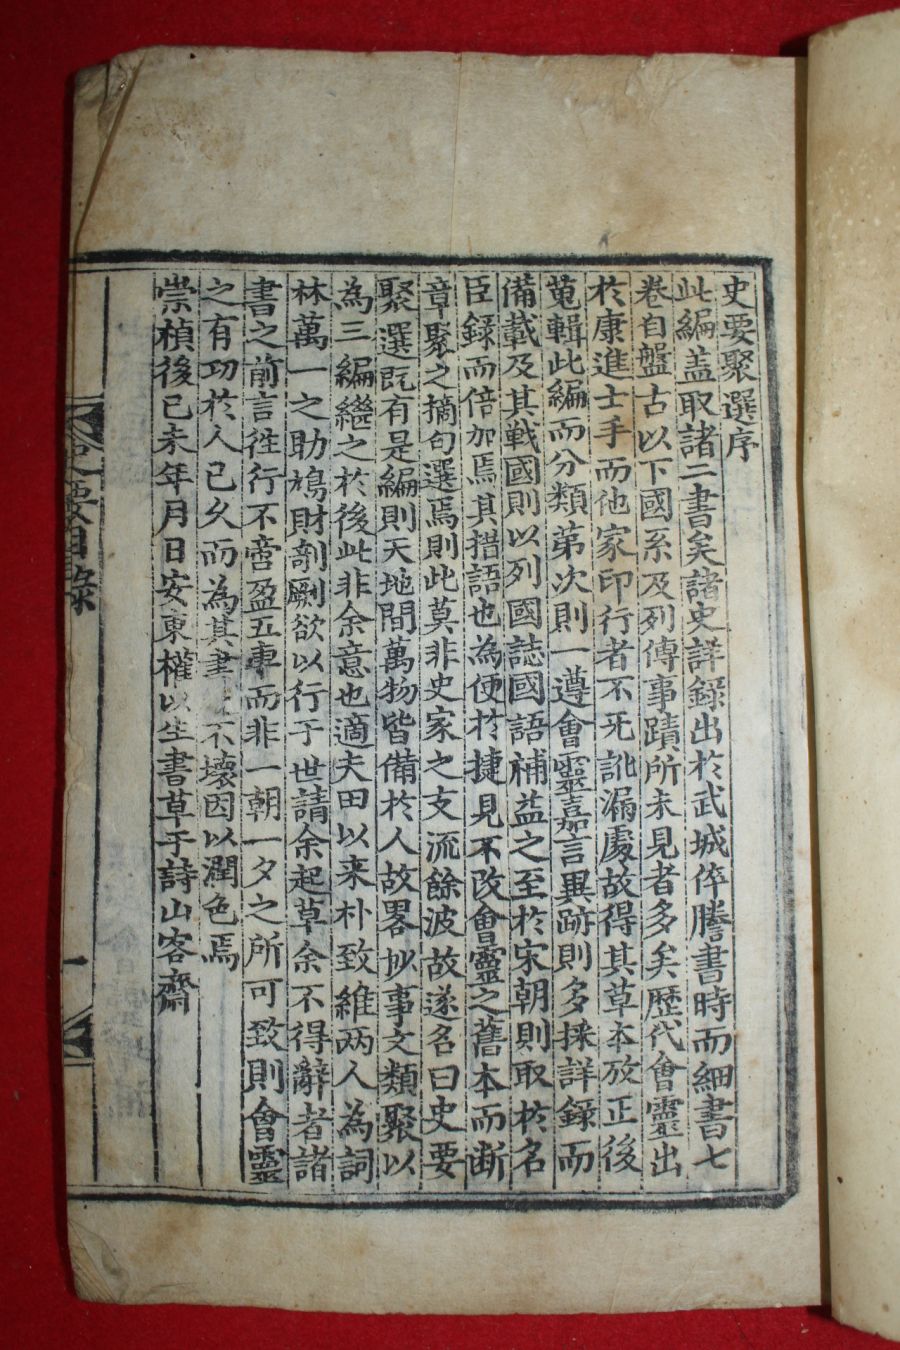 史要聚選序
此編盖取諸二書矣諸史詳錄出於武城倅謄書時而細書七
卷自盤古以下國系及列傳事蹟所未見者多矣歷代會靈出
於康進士手而他家印行者不无訛漏處故得其草本攷正後
蒐輯此編而分類第次則一遵會靈嘉言異跡則多採詳錄而
備載及其戰國則以列國誌國語補益之至於宋朝則取於名
臣錄而倍加焉其措語也為便於捷見不改會靈之舊本而斷
章聚之摘句選焉則此莫非史家之支流餘波故遂名曰史要
聚選旣有是編則天地間萬物皆備於人故畧抄事文類聚以
為三編繼之於後此非余意也適夫田以来朴致維两人為詞
林萬一之助鳩財剞劂欲以行于世請余起草余不得辭者諸
書之前言徃行不啻盈五車而非一朝一夕之所可致則會靈
之有功於人已久而為其書不壞因以潤色焉
崇禎後己未年月日安東權以生書草于詩山客齋
史要目錄
一